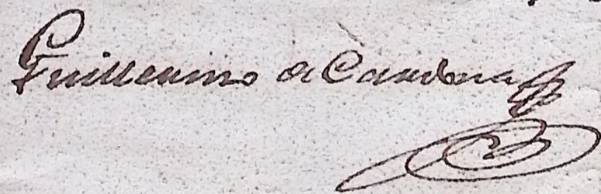 Guillermo de Cardona